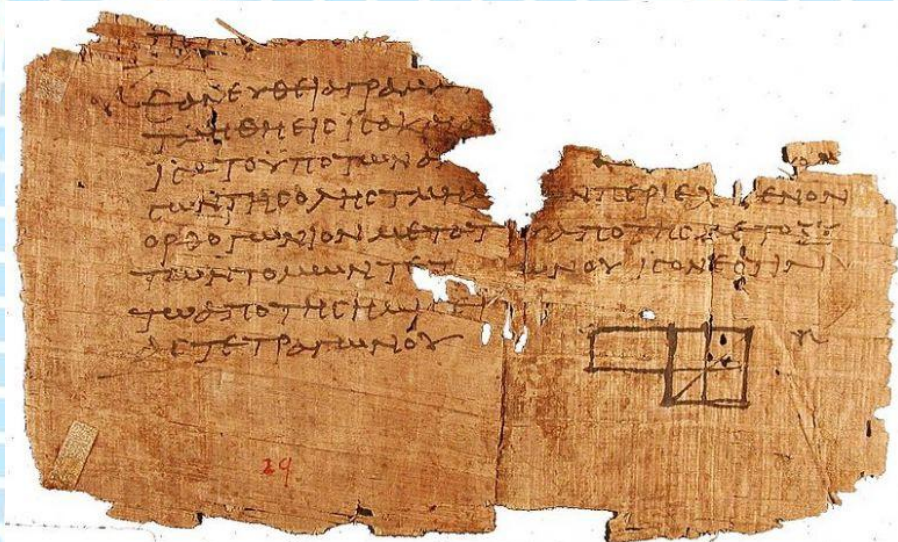 ΕΑΝΕΥΘΕΙΑΓΡΑΜΜ
ΤΜΗΘΗΕΙCΙCΑΚΑΙΑ
ΙCΑΤΟΥΠΟΤΩΝΑ
CΩΝΤΗCΟΛΗCΤΜΗΜ ΩΝΠΕΡΙΕΧ ΕΝΟΝ
ΟΡΘΟΓΩΝΙΟΝΜΕΤΑΤ ΑΠΟΤΗCΜΕΤΑΞΥ
ΤΩΝΤΟΜΩΝΤΕΤ ΩΝΟΥΙCΟΝΕCΤΙΝ
ΤΩΑΠΟΤΗCΗΜΙCΕΙ
ΑCΤΕΤΡΑΓΩΝΟΥ
29